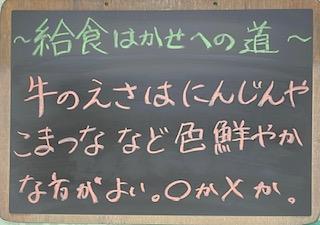 ～給食はかせへの道～
牛のえさはにんじんや
こまつななど色鮮やか
な方がよい。○か×か。